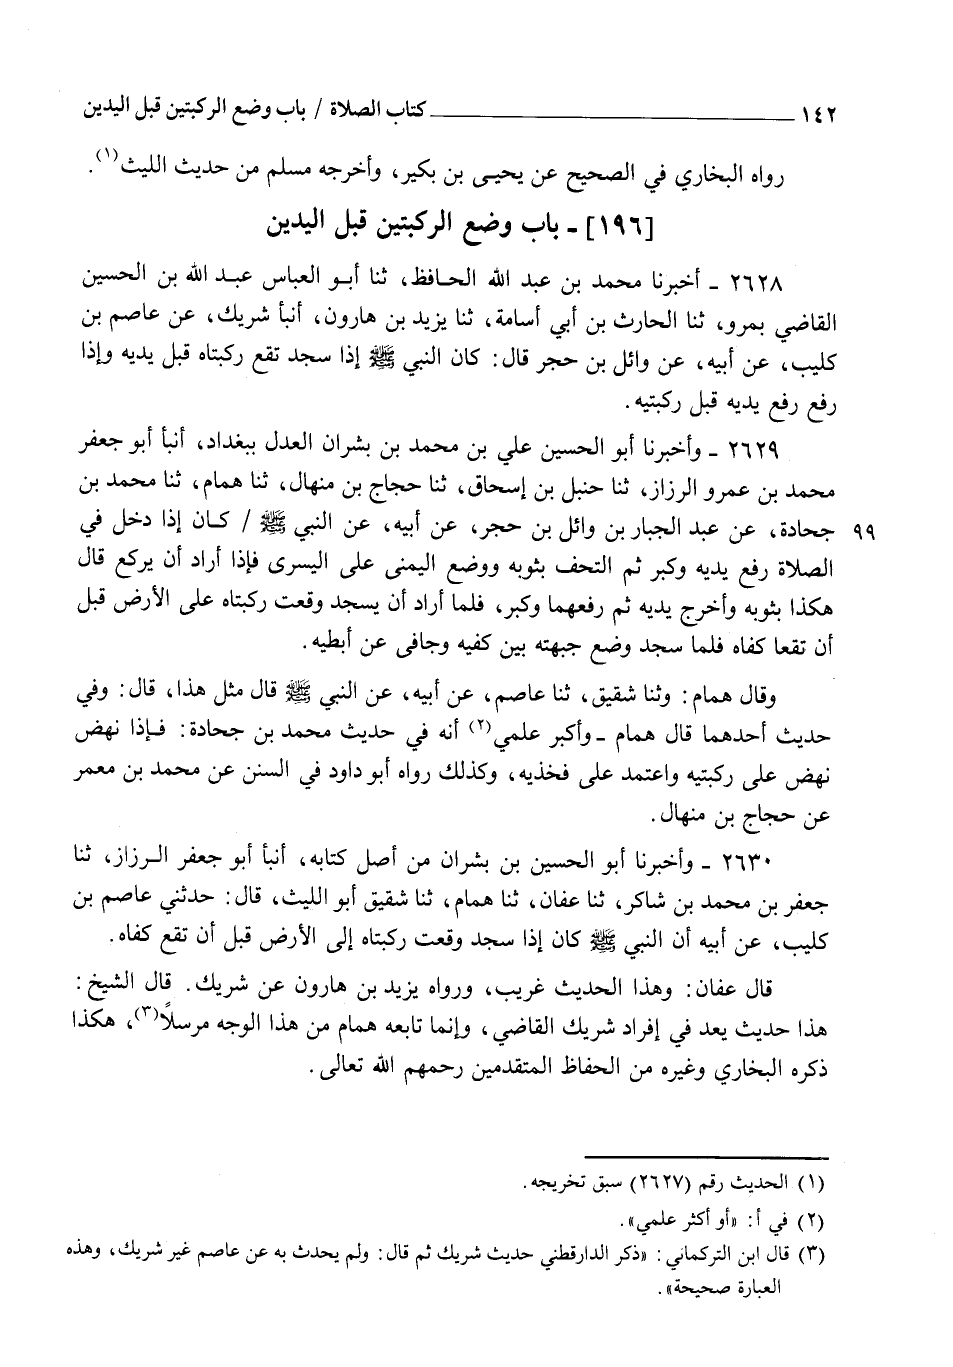 ١٤٢ ــــــ كتاب الصلاة / باب وضع الركبتين قبل اليدين
رواه البخاري في الصحيح عن يحيى بن بكير، وأخرجه مسلم من حديث الليث(١).
[١٩٦] ـ باب وضع الركبتين قبل اليدين
٢٦٢٨ ـ أخبرنا محمد بن عبد الله الحافظ، ثنا أبو العباس عبد الله بن الحسين
القاضي بمرو، ثنا الحارث بن أبي أسامة، ثنا يزيد بن هارون، أنبأ شريك، عن عاصم بن
كليب، عن أبيه، عن وائل بن حجر قال: كان النبي ﷺ إذا سجد تقع ركبتاه قبل يديه وإذا
رفع رفع يديه قبل ركبتيه.
٢٦٢٩ ـ وأخبرنا أبو الحسين علي بن محمد بن بشران العدل ببغداد، أنبأ أبو جعفر
محمد بن عمرو الرزاز، ثنا حنبل بن إسحاق، ثنا حجاج بن منهال، ثنا همام، ثنا محمد بن
٩٩ جحادة، عن عبد الجبار بن وائل بن حجر، عن أبيه، عن النبي ﷺ / كان إذا دخل في
الصلاة رفع يديه وكبر ثم التحف بثوبه ووضع اليمنى على اليسرى فإذا أراد أن يركع قال
هكذا بثوبه وأخرج يديه ثم رفعهما وكبر، فلما أراد أن يسجد وقعت ركبتاه على الأرض قبل
أن تقعا كفاه فلما سجد وضع جبهته بين كفيه وجافى عن أبطيه.
وقال همام: وثنا شقيق، ثنا عاصم، عن أبيه، عن النبي ﷺ قال مثل هذا، قال: وفي
حديث أحدهما قال همام ـ وأكبر علمي(٢) أنه في حديث محمد بن جحادة: فإذا نهض
نهض على ركبتيه واعتمد على فخذيه، وكذلك رواه أبو داود في السنن عن محمد بن معمر
عن حجاج بن منهال.
٢٦٣٠ ـ وأخبرنا أبو الحسين بن بشران من أصل كتابه، أنبأ أبو جعفر الرزاز، ثنا
جعفر بن محمد بن شاكر، ثنا عفان، ثنا همام، ثنا شقيق أبو الليث، قال: حدثني عاصم بن
كليب، عن أبيه أن النبي ﷺ كان إذا سجد وقعت ركبتاه إلى الأرض قبل أن تقع كفاه.
قال عفان: وهذا الحديث غريب، ورواه يزيد بن هارون عن شريك. قال الشيخ:
هذا حديث يعد في إفراد شريك القاضي، وإنما تابعه همام من هذا الوجه مرسلاً(٣)، هكذا
ذكره البخاري وغيره من الحفاظ المتقدمين رحمهم الله تعالى.
(١) الحديث رقم (٢٦٢٧) سبق تخريجه.
(٢) في أ: «أو أكثر علمي».
(٣) قال ابن التركماني: «ذكر الدارقطني حديث شريك ثم قال: ولم يحدث به عن عاصم غير شريك، وهذه
العبارة صحيحة».